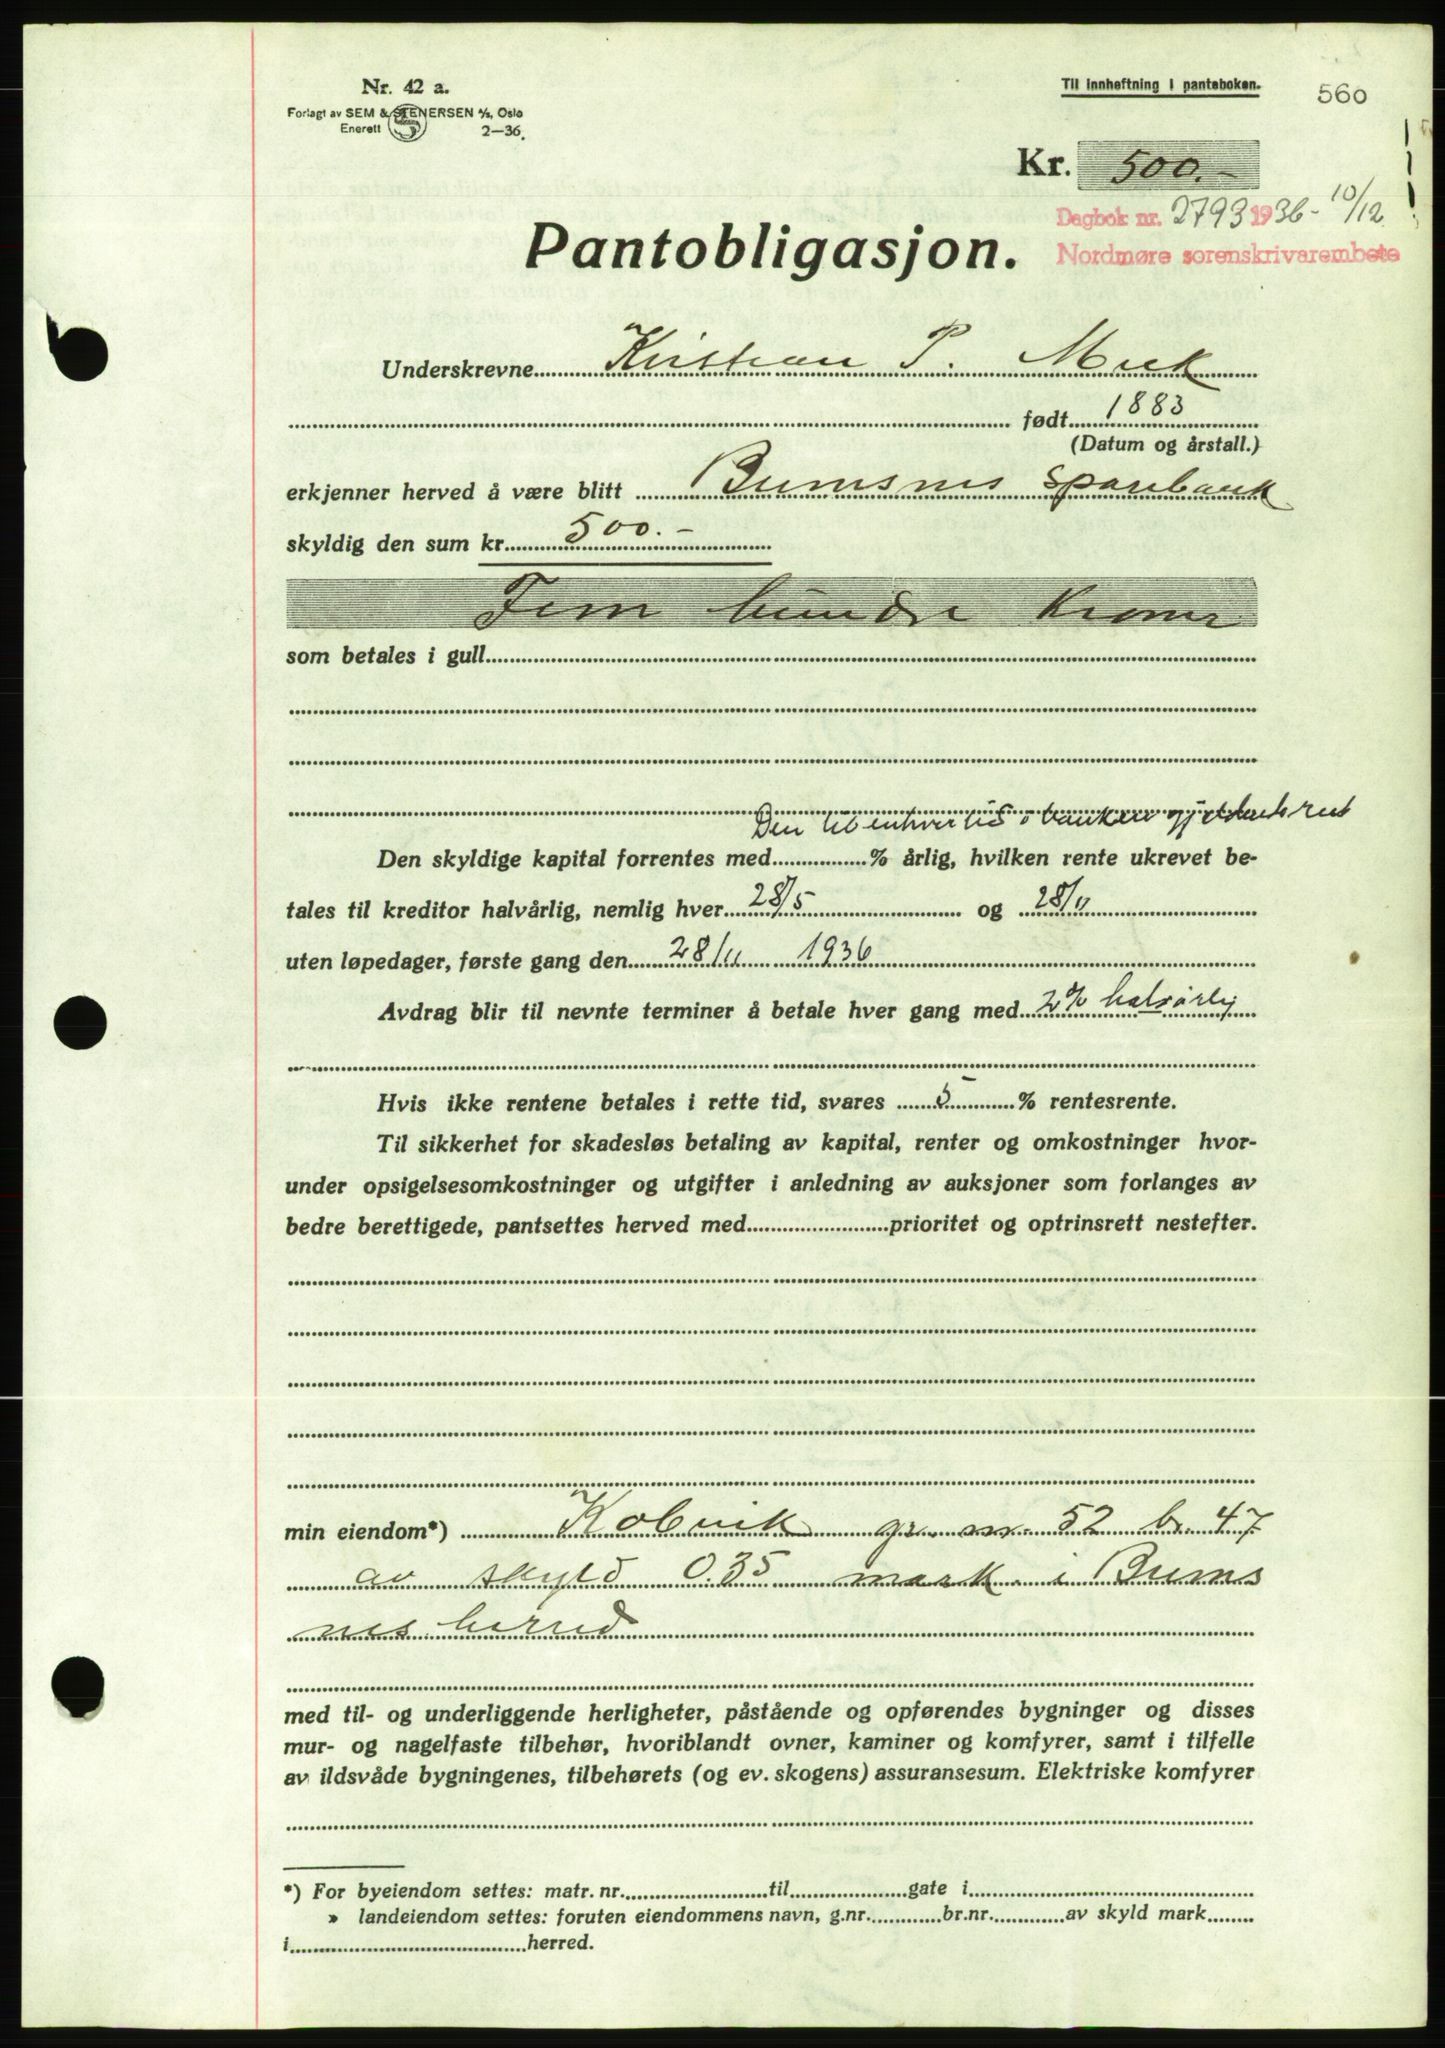 Nr. 42 a.
Forlagt av SEM & STENERSEN A/S, Oslo
Enerett 2—36.
Til innheftning i panteboken.
560
Kr. 500.-
Dagbok nr. 2793 1936 - 10/12
Nordmøre sorenskrivarembete
Pantobligasjon.
Underskrevne Kristian P.
født 1883
(Datum og årstall.)
erkjenner herved å være blitt Bremsnes Sparebank
skyldig den sum kr. 500.-
Fem hundre Kroner
som betales i gull
Den til enhver tid i banken gjeldende rente
Den skyldige kapital forrentes med % årlig, hvilken rente ukrevet be-
tales til kreditor halvårlig, nemlig hver 28/5 og 28/11
uten løpedager, første gang den 28/11 1936
Avdrag blir til nevnte terminer å betale hver gang med 2% halvårlig
Hvis ikke rentene betales i rette tid, svares 5 % rentesrente.
Til sikkerhet for skadesløs betaling av kapital, renter og omkostninger hvor-
under opsigelsesomkostninger og utgifter i anledning av auksjoner som forlanges av
bedre berettigede, pantsettes herved med prioritet og optrinsrett nestefter.
min eiendom*) Kobvik gr. nr. 52 br. 47
av skyld 0.35 mark i Brems
nes herred
med til- og underliggende herligheter, påstående og opførendes bygninger og disses
mur- og nagelfaste tilbehør, hvoriblandt ovner, kaminer og komfyrer, samt i tilfelle
av ildsvåde bygningenes, tilbehørets (og ev. skogens) assuransesum. Elektriske komfyrer
*) For byeiendom settes: matr. nr. til gate i
» landeiendom settes: foruten eiendommens navn, g.nr. br.nr. av skyld mark
i herred.